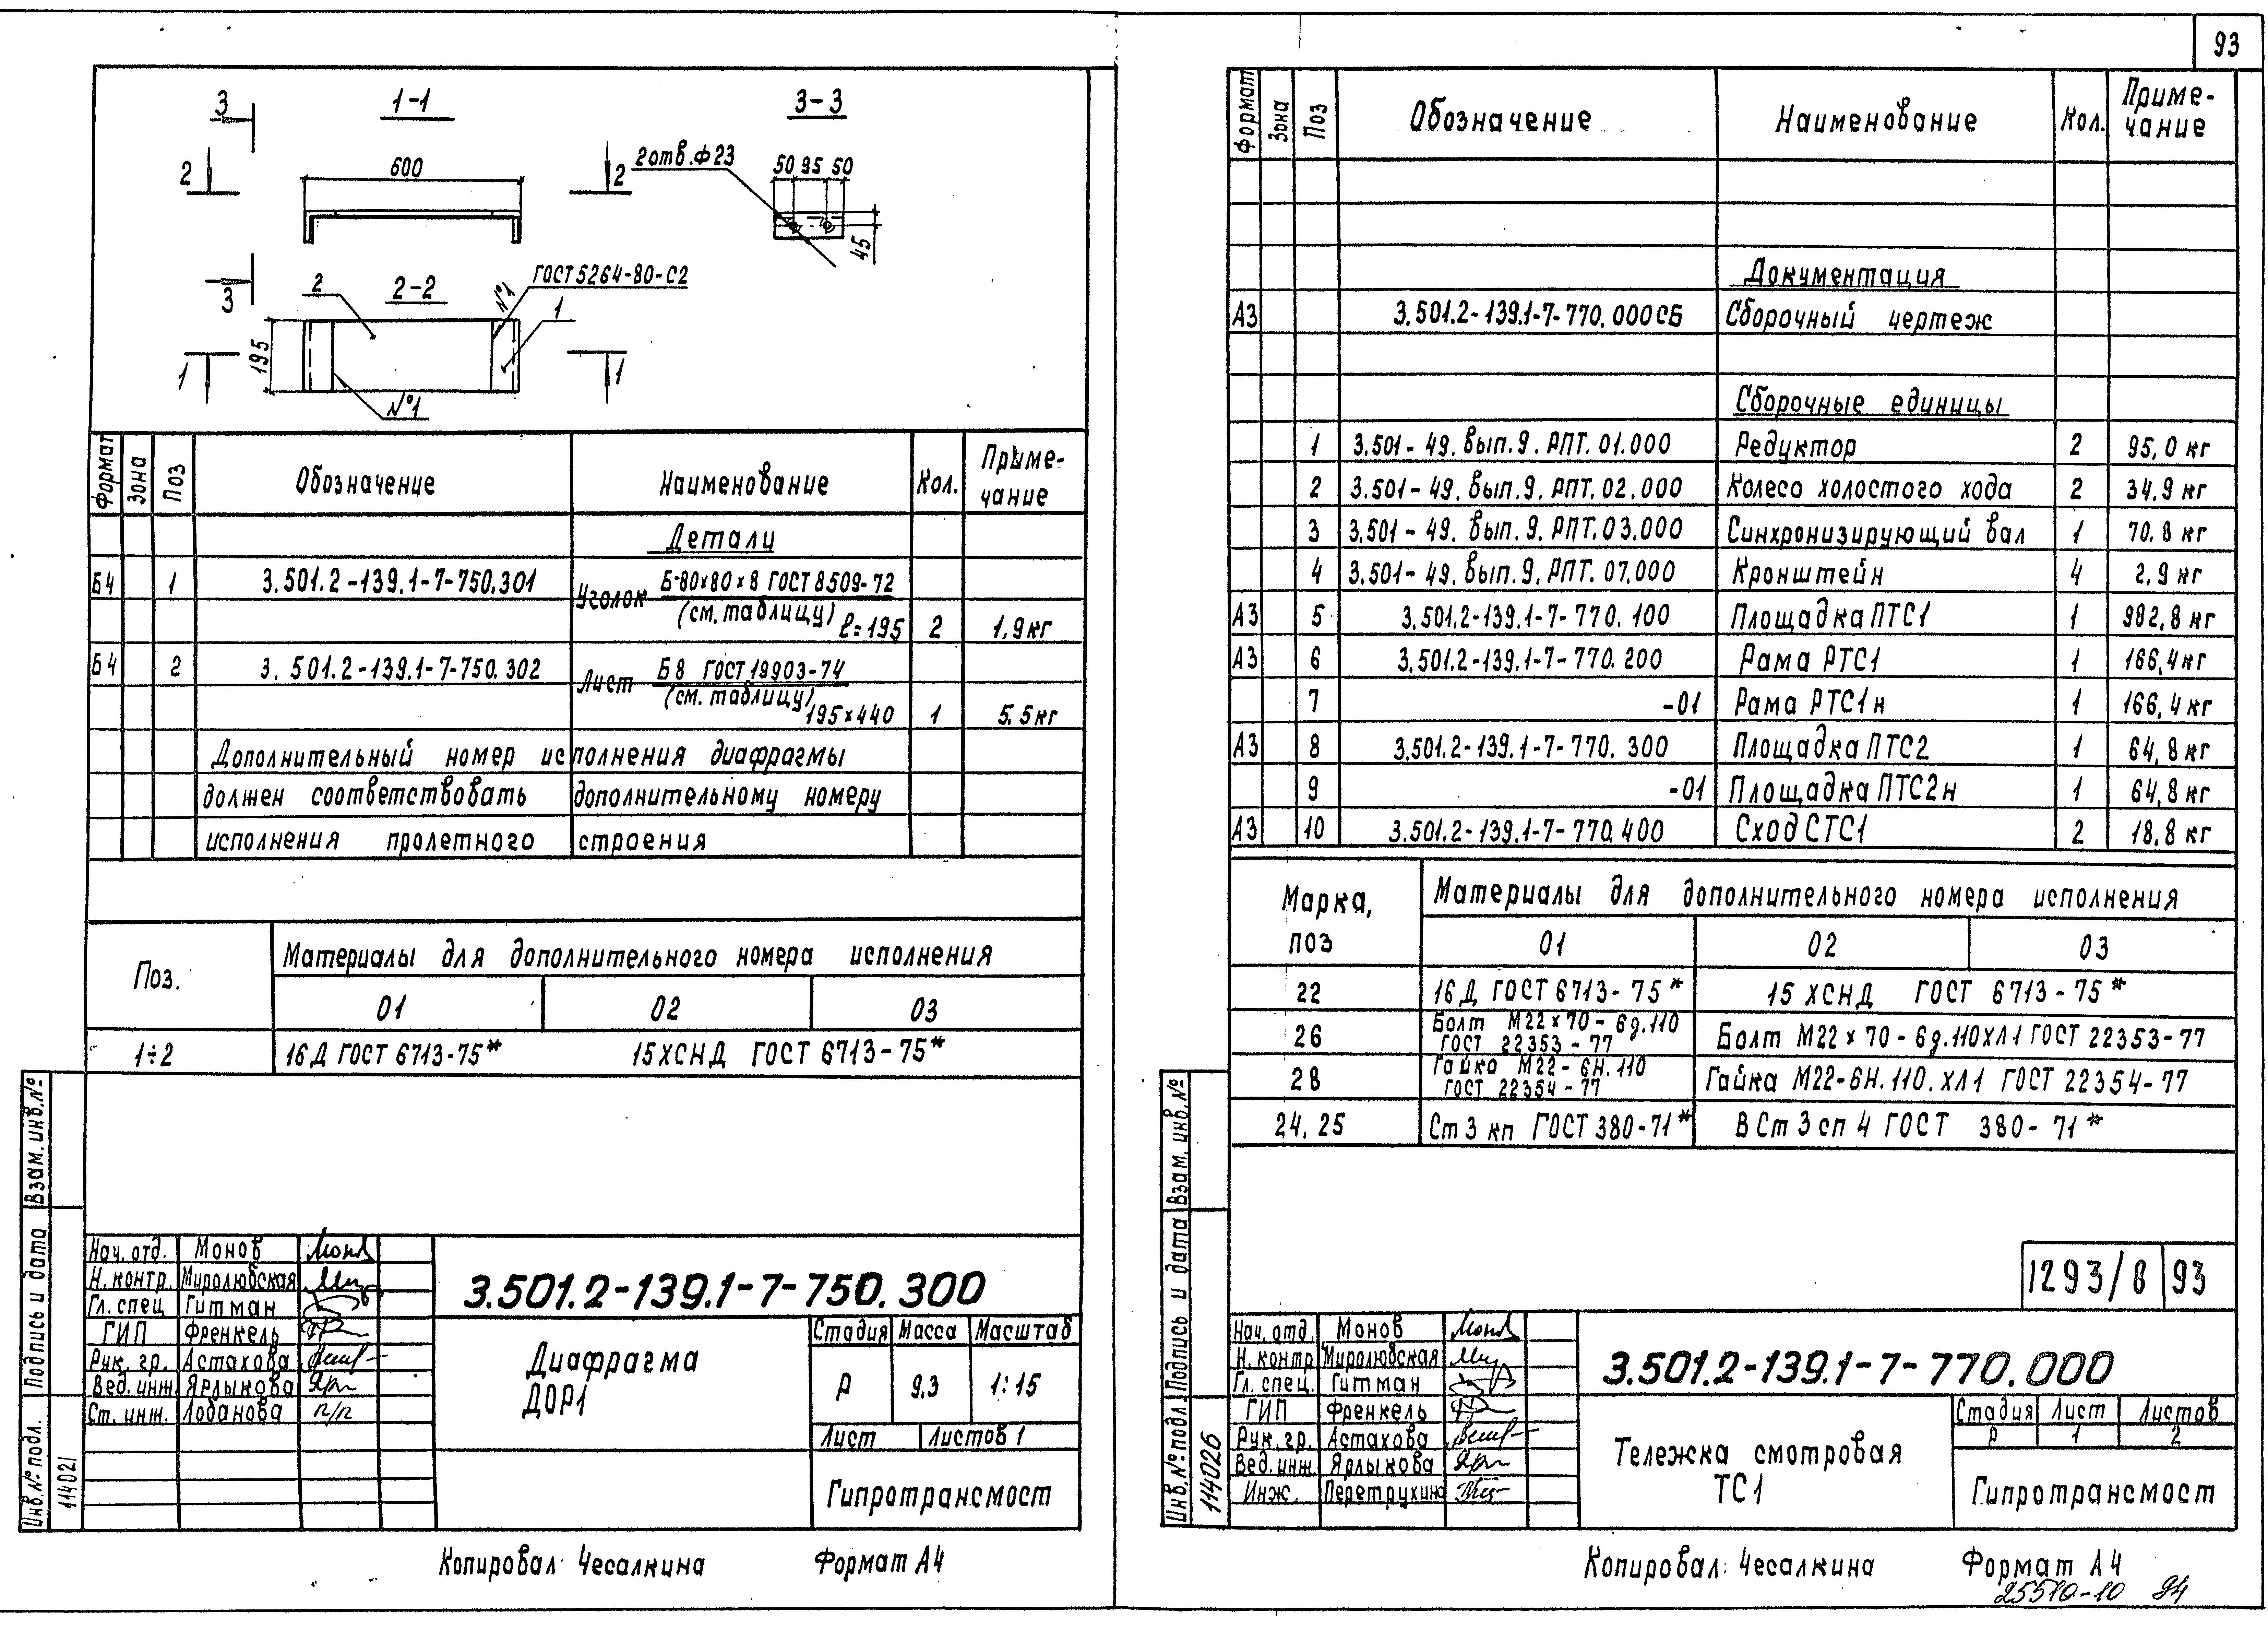 93
3
1-1
3-3
2
600
2
2 отв. Ф 23
50 95 50
45
3
2
2-2
№1
ГОСТ 5264-80-С2
1
195
1
1
№1
Формат
Зона
Поз
Обозначение
Наименование
Кол.
Приме-
чание
Детали
Б4 1 3.501.2-139.1-7-750.301 Уголок Б-80×80×8 ГОСТ 8509-72
(см. таблицу) ℓ=195 2 1,9 кг
Б4 2 3.501.2-139.1-7-750.302 Лист Б8 ГОСТ 19903-74
(см. таблицу) 195×440 1 5,5 кг
Дополнительный номер исполнения диафрагмы
должен соответствовать дополнительному номеру
исполнения пролетного строения
Поз.
Материалы для дополнительного номера исполнения
01 02 03
1÷2 16Д ГОСТ 6713-75* 15ХСНД ГОСТ 6713-75*
Взам. инв. №
Подпись и дата
Инв. № подл.
114021
Нач. отд. Монов
Н. контр. Миролюбская
Гл. спец Гитман
ГИП Френкель
Рук. гр. Астахова
Вед. инж. Ярлыкова
Ст. инж. Лобанова п/п
3.501.2-139.1-7-750.300
Диафрагма
ДОР1
Стадия Масса Масштаб
Р 9.3 1:15
Лист Листов 1
Гипротрансмост
Копировал: Чесалкина Формат А4
Формат
Зона
Поз
Обозначение
Наименование
Кол.
Приме-
чание
Документация
А3 3.501.2-139.1-7-770.000СБ Сборочный чертеж
Сборочные единицы
1 3.501-49. вып. 9. РПТ. 01.000 Редуктор 2 95,0 кг
2 3.501-49. вып. 9. РПТ. 02.000 Колесо холостого хода 2 34,9 кг
3 3.501-49. вып. 9. РПТ. 03.000 Синхронизирующий вал 1 70,8 кг
4 3.501-49. вып. 9. РПТ. 07.000 Кронштейн 4 2,9 кг
А3 5 3.501.2-139.1-7-770.100 Площадка ПТС1 1 982,8 кг
А3 6 3.501.2-139.1-7-770.200 Рама РТС1 1 166,4 кг
7 -01 Рама РТС1н 1 166,4 кг
А3 8 3.501.2-139.1-7-770.300 Площадка ПТС2 1 64,8 кг
9 -01 Площадка ПТС2н 1 64,8 кг
А3 10 3.501.2-139.1-7-770.400 Сход СТС1 2 18,8 кг
Марка,
поз
Материалы для дополнительного номера исполнения
01 02 03
22 16Д ГОСТ 6713-75* 15 ХСНД ГОСТ 6713-75*
26 Болт М22×70-6g.110
ГОСТ 22353-77 Болт М22×70-6g.110ХЛ1 ГОСТ 22353-77
28 Гайка М22-6Н.110
ГОСТ 22354-77 Гайка М22-6Н.110.ХЛ1 ГОСТ 22354-77
24, 25 Ст 3 кп ГОСТ 380-71* ВСт 3 сп 4 ГОСТ 380-71*
1293/8 93
Взам. инв. №
Подпись и дата
Инв. № подл.
114026
Нач. отд. Монов
Н. контр Миролюбская
Гл. спец. Гитман
ГИП Френкель
Рук. гр. Астахова
Вед. инж. Ярлыкова
Инж. Перетрухина
3.501.2-139.1-7-770.000
Тележка смотровая
ТС1
Стадия Лист Листов
Р 1 2
Гипротрансмост
Копировал: Чесалкина Формат А4
25510-10 94